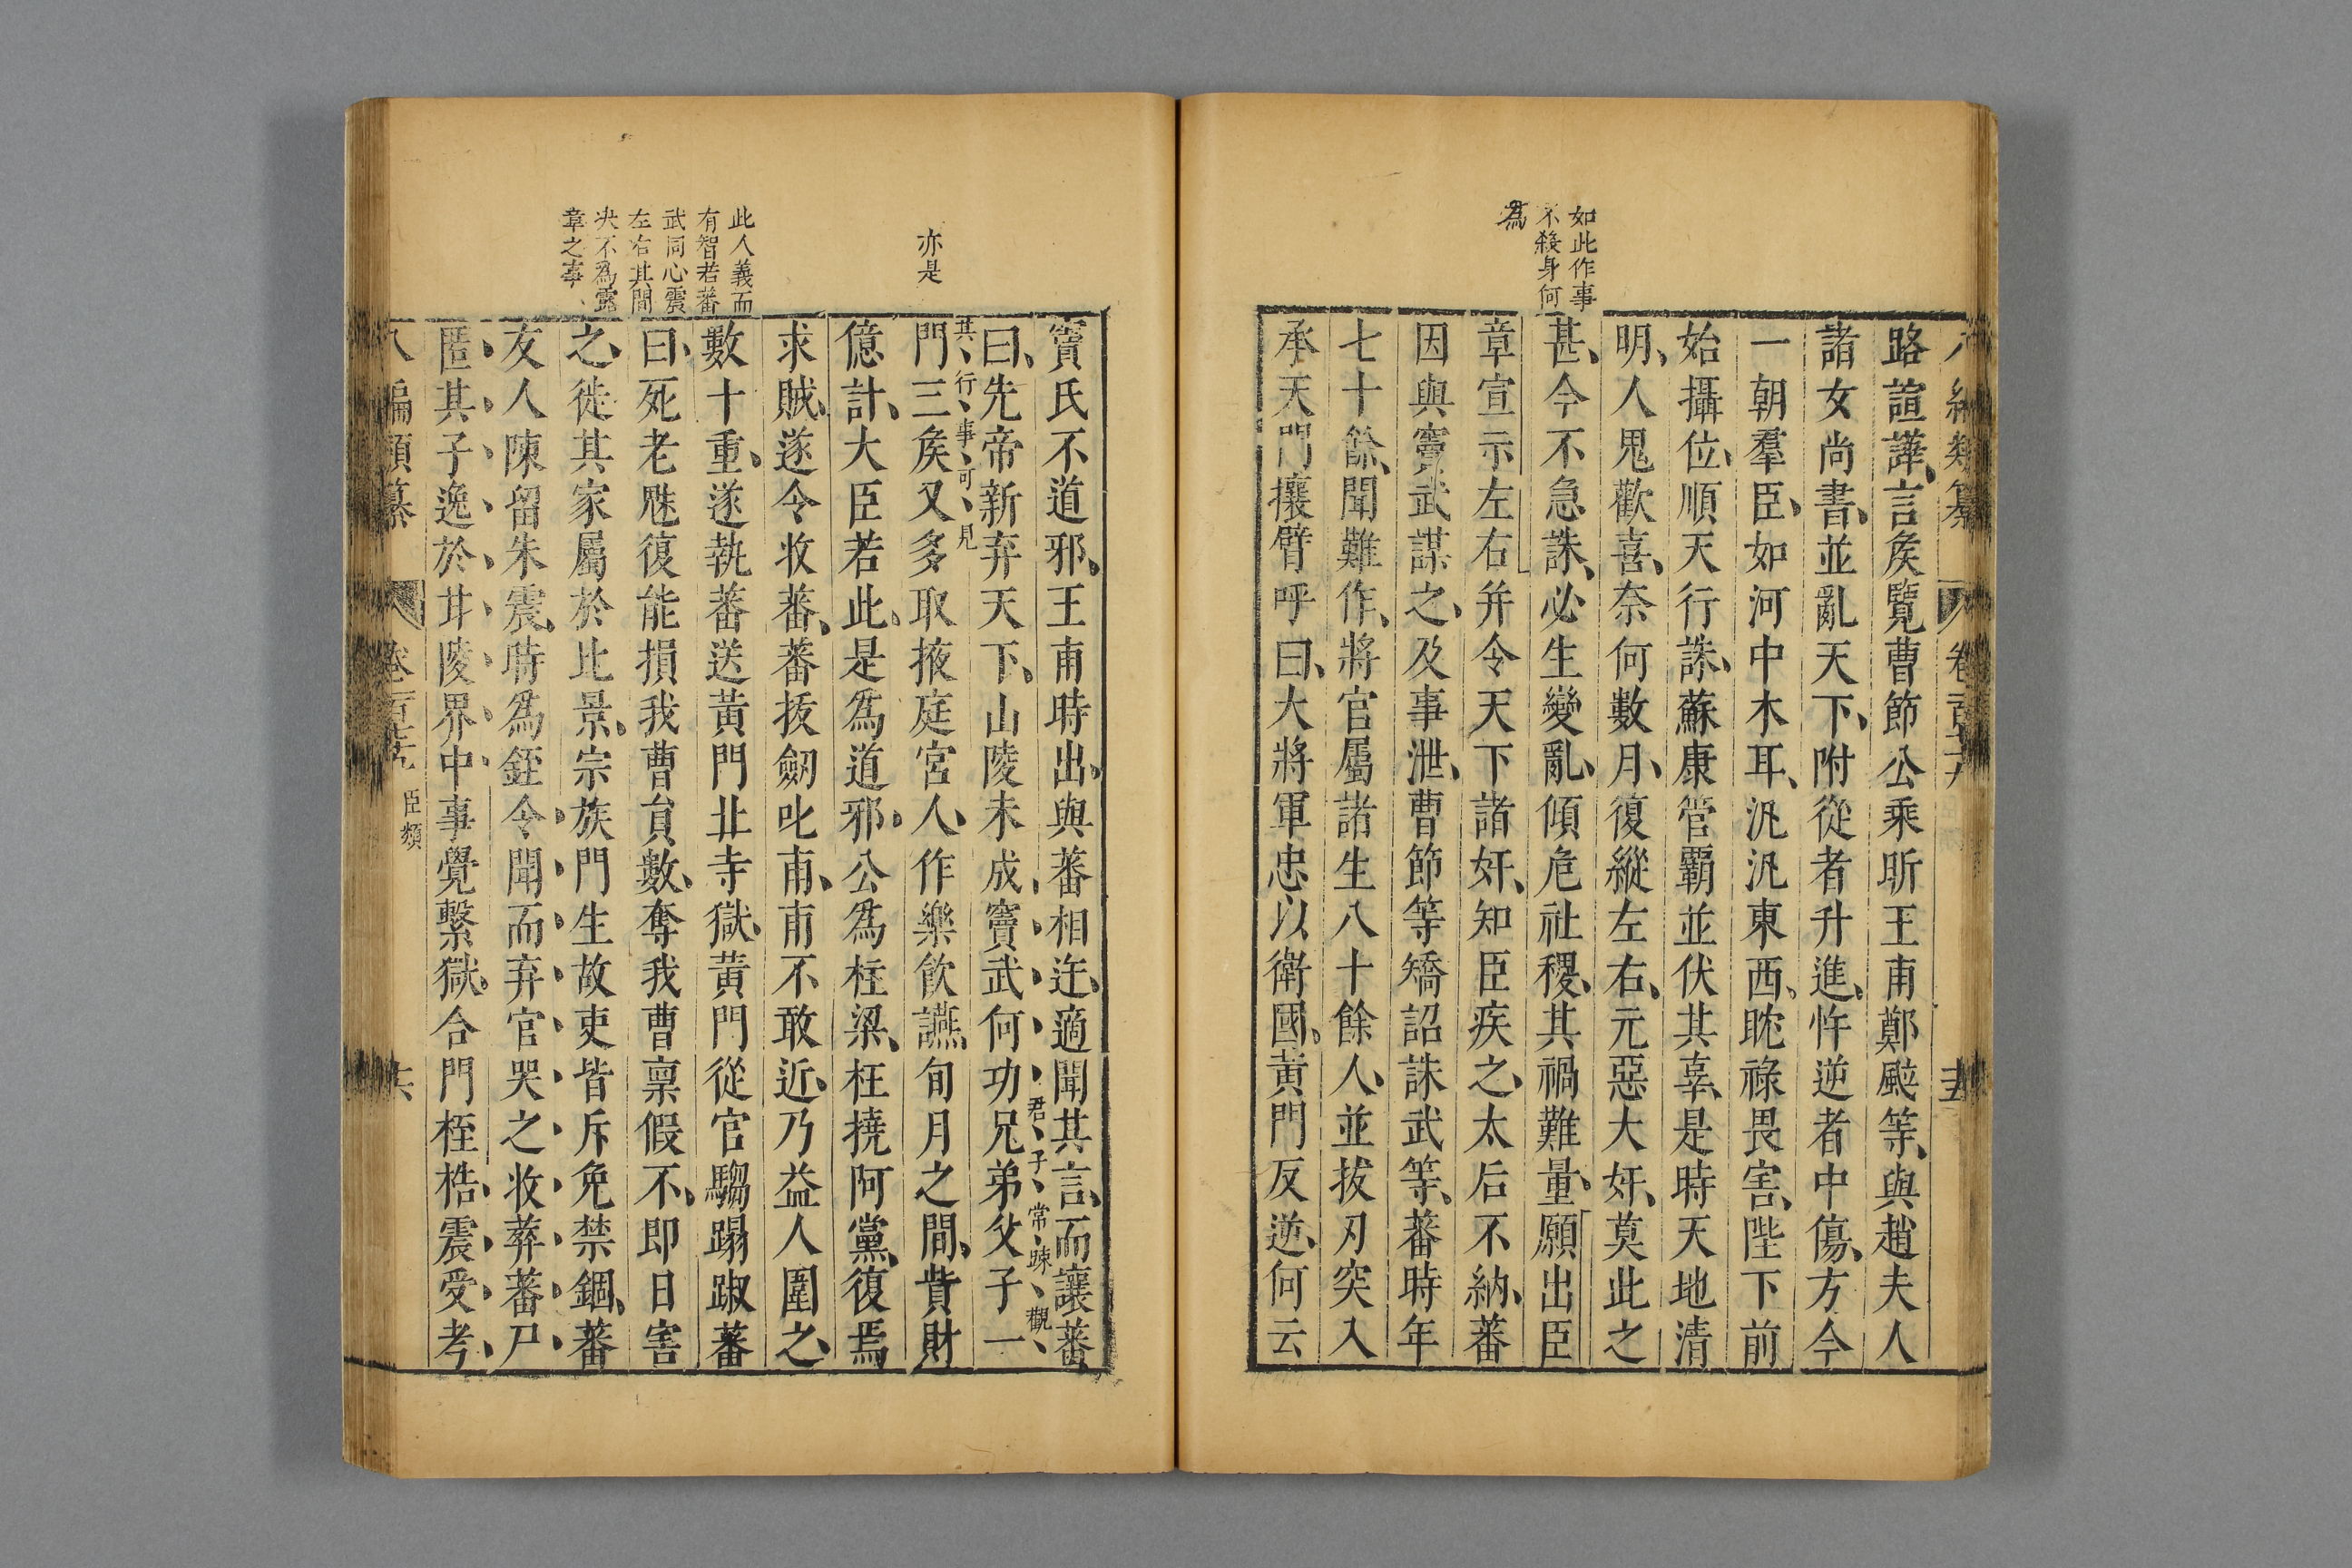 如此作事
不殺身何
爲
路諠譁言矦覽曹節公乘昕王甫鄭颯等與趙夫人
諸女尚書並亂天下附從者升進忤逆者中傷方今
一朝羣臣如河中木耳汎汎東西眈祿畏害陛下前
始攝位順天行誅蘇康管霸並伏其辜是時天地清
明人鬼歡喜奈何數月復縱左右元惡大奸莫此之
甚今不急誅必生變亂傾危社稷其禍難量願出臣
章宣示左右并令天下諸奸知臣疾之太后不納蕃
因與竇武謀之及事泄曹節等矯詔誅武等蕃時年
七十餘聞難作將官屬諸生八十餘人並拔刃突入
承天門攘臂呼曰大將軍忠以衛國黃門反逆何云
亦是
此人義而
有智若蕃
武同心震
左右其間
决不爲露
章之事
竇氏不道邪王甫時出與蕃相迕適聞其言而讓蕃
君子常疎觀
曰先帝新弃天下山陵未成竇武何功兄弟父子一
其行事可見
門三矦又多取掖庭宮人作樂飲讌旬月之間貲財
億計大臣若此是爲道邪公爲柱梁枉撓阿黨復焉
求賊遂令收蕃蕃拔劒叱甫甫不敢近乃益人圍之
數十重遂執蕃送黃門北寺獄黃門從官騶蹋踧蕃
曰死老魅復能損我曹員數奪我曹稟假不即日害
之徙其家屬於比景宗族門生故吏皆斥免禁錮蕃
友人陳留朱震時爲銍令聞而弃官哭之收葬蕃尸
匿其子逸於甘陵界中事覺繫獄合門桎梏震受考
八編類纂
臣類